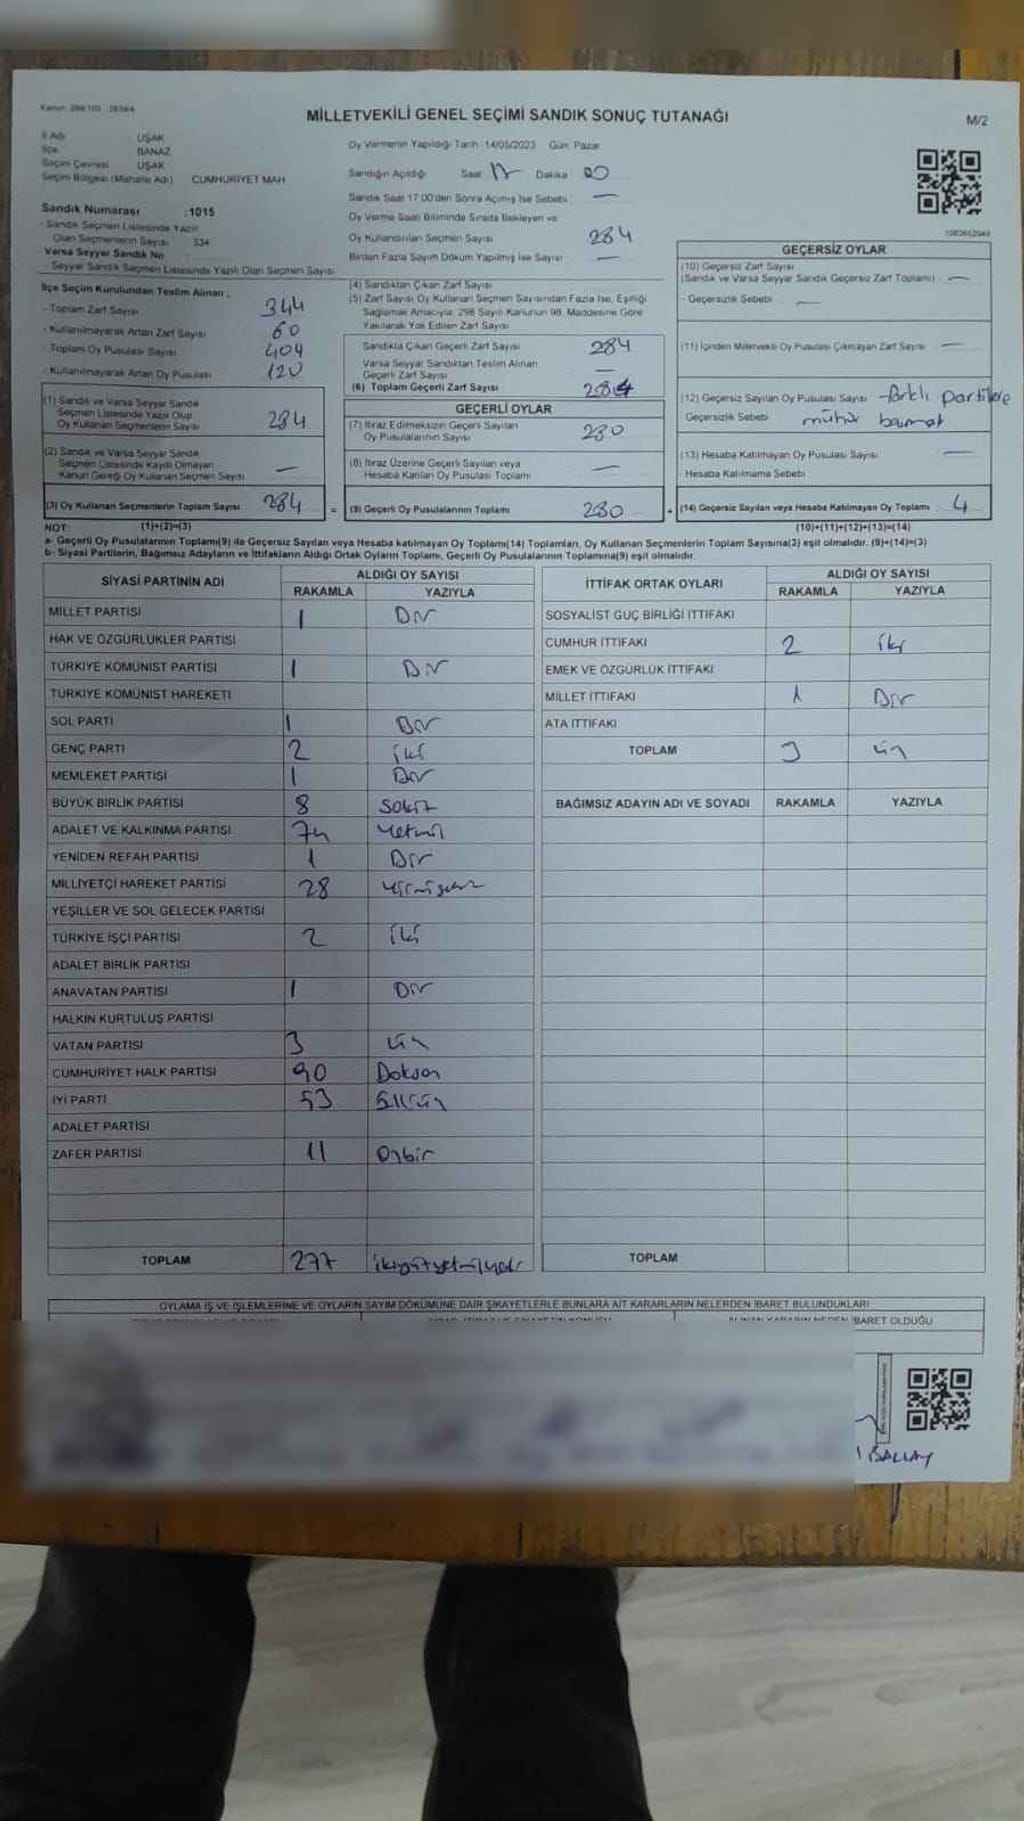 MİLLETVEKİLİ GENEL SEÇİMİ SANDIK SONUÇ TUTANAĞI
M/2
İl Adı UŞAK
İlçe BANAZ
Seçim Çevresi UŞAK
Seçim Bölgesi (Mahalle Adı) CUMHURİYET MAH
Sandık Numarası :1015
- Sandık Seçmen Listesinde Yazılı
Olan Seçmenlerin Sayısı 334
Varsa Seyyar Sandık No
- Seyyar Sandık Seçmen Listesinde Yazılı Olan Seçmen Sayısı
İlçe Seçim Kurulundan Teslim Alınan :
- Toplam Zarf Sayısı 344
- Kullanılmayarak Artan Zarf Sayısı 60
- Toplam Oy Pusulası Sayısı 404
- Kullanılmayarak Artan Oy Pusulası 120
(1) Sandık ve Varsa Seyyar Sandık
Seçmen Listesinde Yazılı Olup
Oy Kullanan Seçmenlerin Sayısı 284
(2) Sandık ve Varsa Seyyar Sandık
Seçmen Listesinde Kaydı Olmayan
Kanun Gereği Oy Kullanan Seçmen Sayısı —
(3) Oy Kullanan Seçmenlerin Toplam Sayısı 284 =
Oy Vermenin Yapıldığı Tarih: 14/05/2023 Gün: Pazar
Sandığın Açıldığı Saat 17 Dakika 00
Sandık Saat 17:00'den Sonra Açılmış İse Sebebi —
Oy Verme Saati Bitiminde Sırada Bekleyen ve
Oy Kullandırılan Seçmen Sayısı 284
Birden Fazla Sayım Döküm Yapılmış İse Sayısı —
(4) Sandıktan Çıkan Zarf Sayısı
(5) Zarf Sayısı Oy Kullanan Seçmen Sayısından Fazla İse, Eşitliği
Sağlamak Amacıyla 298 Sayılı Kanunun 98. Maddesine Göre
Yakılarak Yok Edilen Zarf Sayısı
Sandıkta Çıkan Geçerli Zarf Sayısı 284
Varsa Seyyar Sandıktan Teslim Alınan
Geçerli Zarf Sayısı —
(6) Toplam Geçerli Zarf Sayısı 284
GEÇERLİ OYLAR
(7) İtiraz Edilmeksizin Geçerli Sayılan
Oy Pusulalarının Sayısı 280
(8) İtiraz Üzerine Geçerli Sayılan veya
Hesaba Katılan Oy Pusulası Toplamı —
(9) Geçerli Oy Pusulalarının Toplamı 280 +
GEÇERSİZ OYLAR
(10) Geçersiz Zarf Sayısı
(Sandık ve Varsa Seyyar Sandık Geçersiz Zarf Toplamı) —
- Geçersizlik Sebebi —
(11) İçinden Milletvekili Oy Pusulası Çıkmayan Zarf Sayısı —
(12) Geçersiz Sayılan Oy Pusulası Sayısı farklı partilere
Geçersizlik Sebebi mühür basmat
(13) Hesaba Katılmayan Oy Pusulası Sayısı —
Hesaba Katılmama Sebebi
(14) Geçersiz Sayılan veya Hesaba Katılmayan Oy Toplamı 4
NOT: (1)+(2)=(3) (10)+(11)+(12)+(13)=(14)
a- Geçerli Oy Pusulalarının Toplamı(9) ile Geçersiz Sayılan veya Hesaba katılmayan Oy Toplamı(14) Toplamları, Oy Kullanan Seçmenlerin Toplam Sayısına(3) eşit olmalıdır. (9)+(14)=(3)
b- Siyasi Partilerin, Bağımsız Adayların ve İttifakların Aldığı Ortak Oyların Toplamı, Geçerli Oy Pusulalarının Toplamına(9) eşit olmalıdır.
SİYASİ PARTİNİN ADI ALDIĞI OY SAYISI
RAKAMLA YAZIYLA
MİLLET PARTİSİ 1 Bir
HAK VE ÖZGÜRLÜKLER PARTİSİ
TÜRKİYE KOMÜNİST PARTİSİ 1 Bir
TÜRKİYE KOMÜNİST HAREKETİ
SOL PARTİ 1 Bir
GENÇ PARTİ 2 iki
MEMLEKET PARTİSİ 1 Bir
BÜYÜK BİRLİK PARTİSİ 8 Sekiz
ADALET VE KALKINMA PARTİSİ 74
YENİDEN REFAH PARTİSİ 1 Bir
MİLLİYETÇİ HAREKET PARTİSİ 28 yirmisekiz
YEŞİLLER VE SOL GELECEK PARTİSİ
TÜRKİYE İŞÇİ PARTİSİ 2 iki
ADALET BİRLİK PARTİSİ
ANAVATAN PARTİSİ 1 Bir
HALKIN KURTULUŞ PARTİSİ
VATAN PARTİSİ 3 üç
CUMHURİYET HALK PARTİSİ 90 Doksan
İYİ PARTİ 53 Elliüç
ADALET PARTİSİ
ZAFER PARTİSİ 11 Onbir
TOPLAM 277 ikiyüzyetmişyedi
İTTİFAK ORTAK OYLARI ALDIĞI OY SAYISI
RAKAMLA YAZIYLA
SOSYALİST GÜÇ BİRLİĞİ İTTİFAKI
CUMHUR İTTİFAKI 2 iki
EMEK VE ÖZGÜRLÜK İTTİFAKI
MİLLET İTTİFAKI 1 Bir
ATA İTTİFAKI
TOPLAM 3 üç
BAĞIMSIZ ADAYIN ADI VE SOYADI RAKAMLA YAZIYLA
TOPLAM
OYLAMA İŞ VE İŞLEMLERİNE VE OYLARIN SAYIM DÖKÜMÜNE DAİR ŞİKAYETLERLE BUNLARA AİT KARARLARIN NELERDEN İBARET BULUNDUKLARI
İBARET OLDUĞU
BALLAY